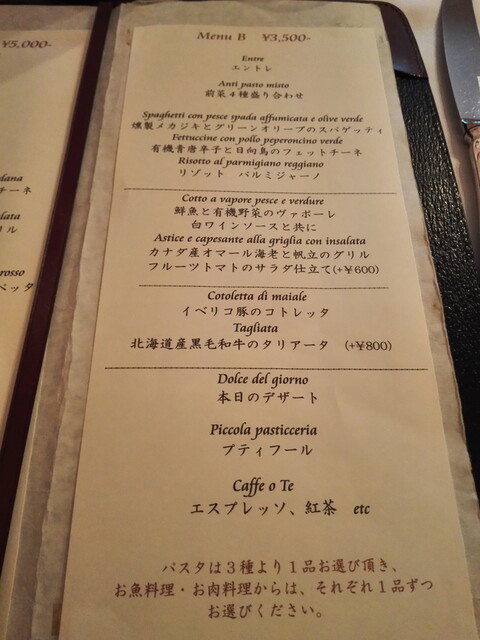 ¥5,000-
dana
チーネ
lata
リル
rosso
ベッタ
Menu B ¥3,500-
Entre
エントレ
Anti pasto misto
前菜4種盛り合わせ
Spaghetti con pesce spada affumicata e olive verde
燻製メカジキとグリーンオリーブのスパゲッティ
Fettuccine con pollo peperoncino verde
有機青唐辛子と日向鳥のフェットチーネ
Risotto al parmigiano reggiano
リゾット パルミジャーノ
Cotto a vapore pesce e verdure
鮮魚と有機野菜のヴァポーレ
白ワインソースと共に
Astice e capesante alla griglia con insalata
カナダ産オマール海老と帆立のグリル
フルーツトマトのサラダ仕立て(+¥600)
Cotoletta di maiale
イベリコ豚のコトレッタ
Tagliata
北海道産黒毛和牛のタリアータ (+¥800)
Dolce del giorno
本日のデザート
Piccola pasticceria
プティフール
Caffe o Te
エスプレッソ、紅茶 etc
パスタは3種より1品お選び頂き、
お魚料理・お肉料理からは、それぞれ1品ずつ
お選びください。